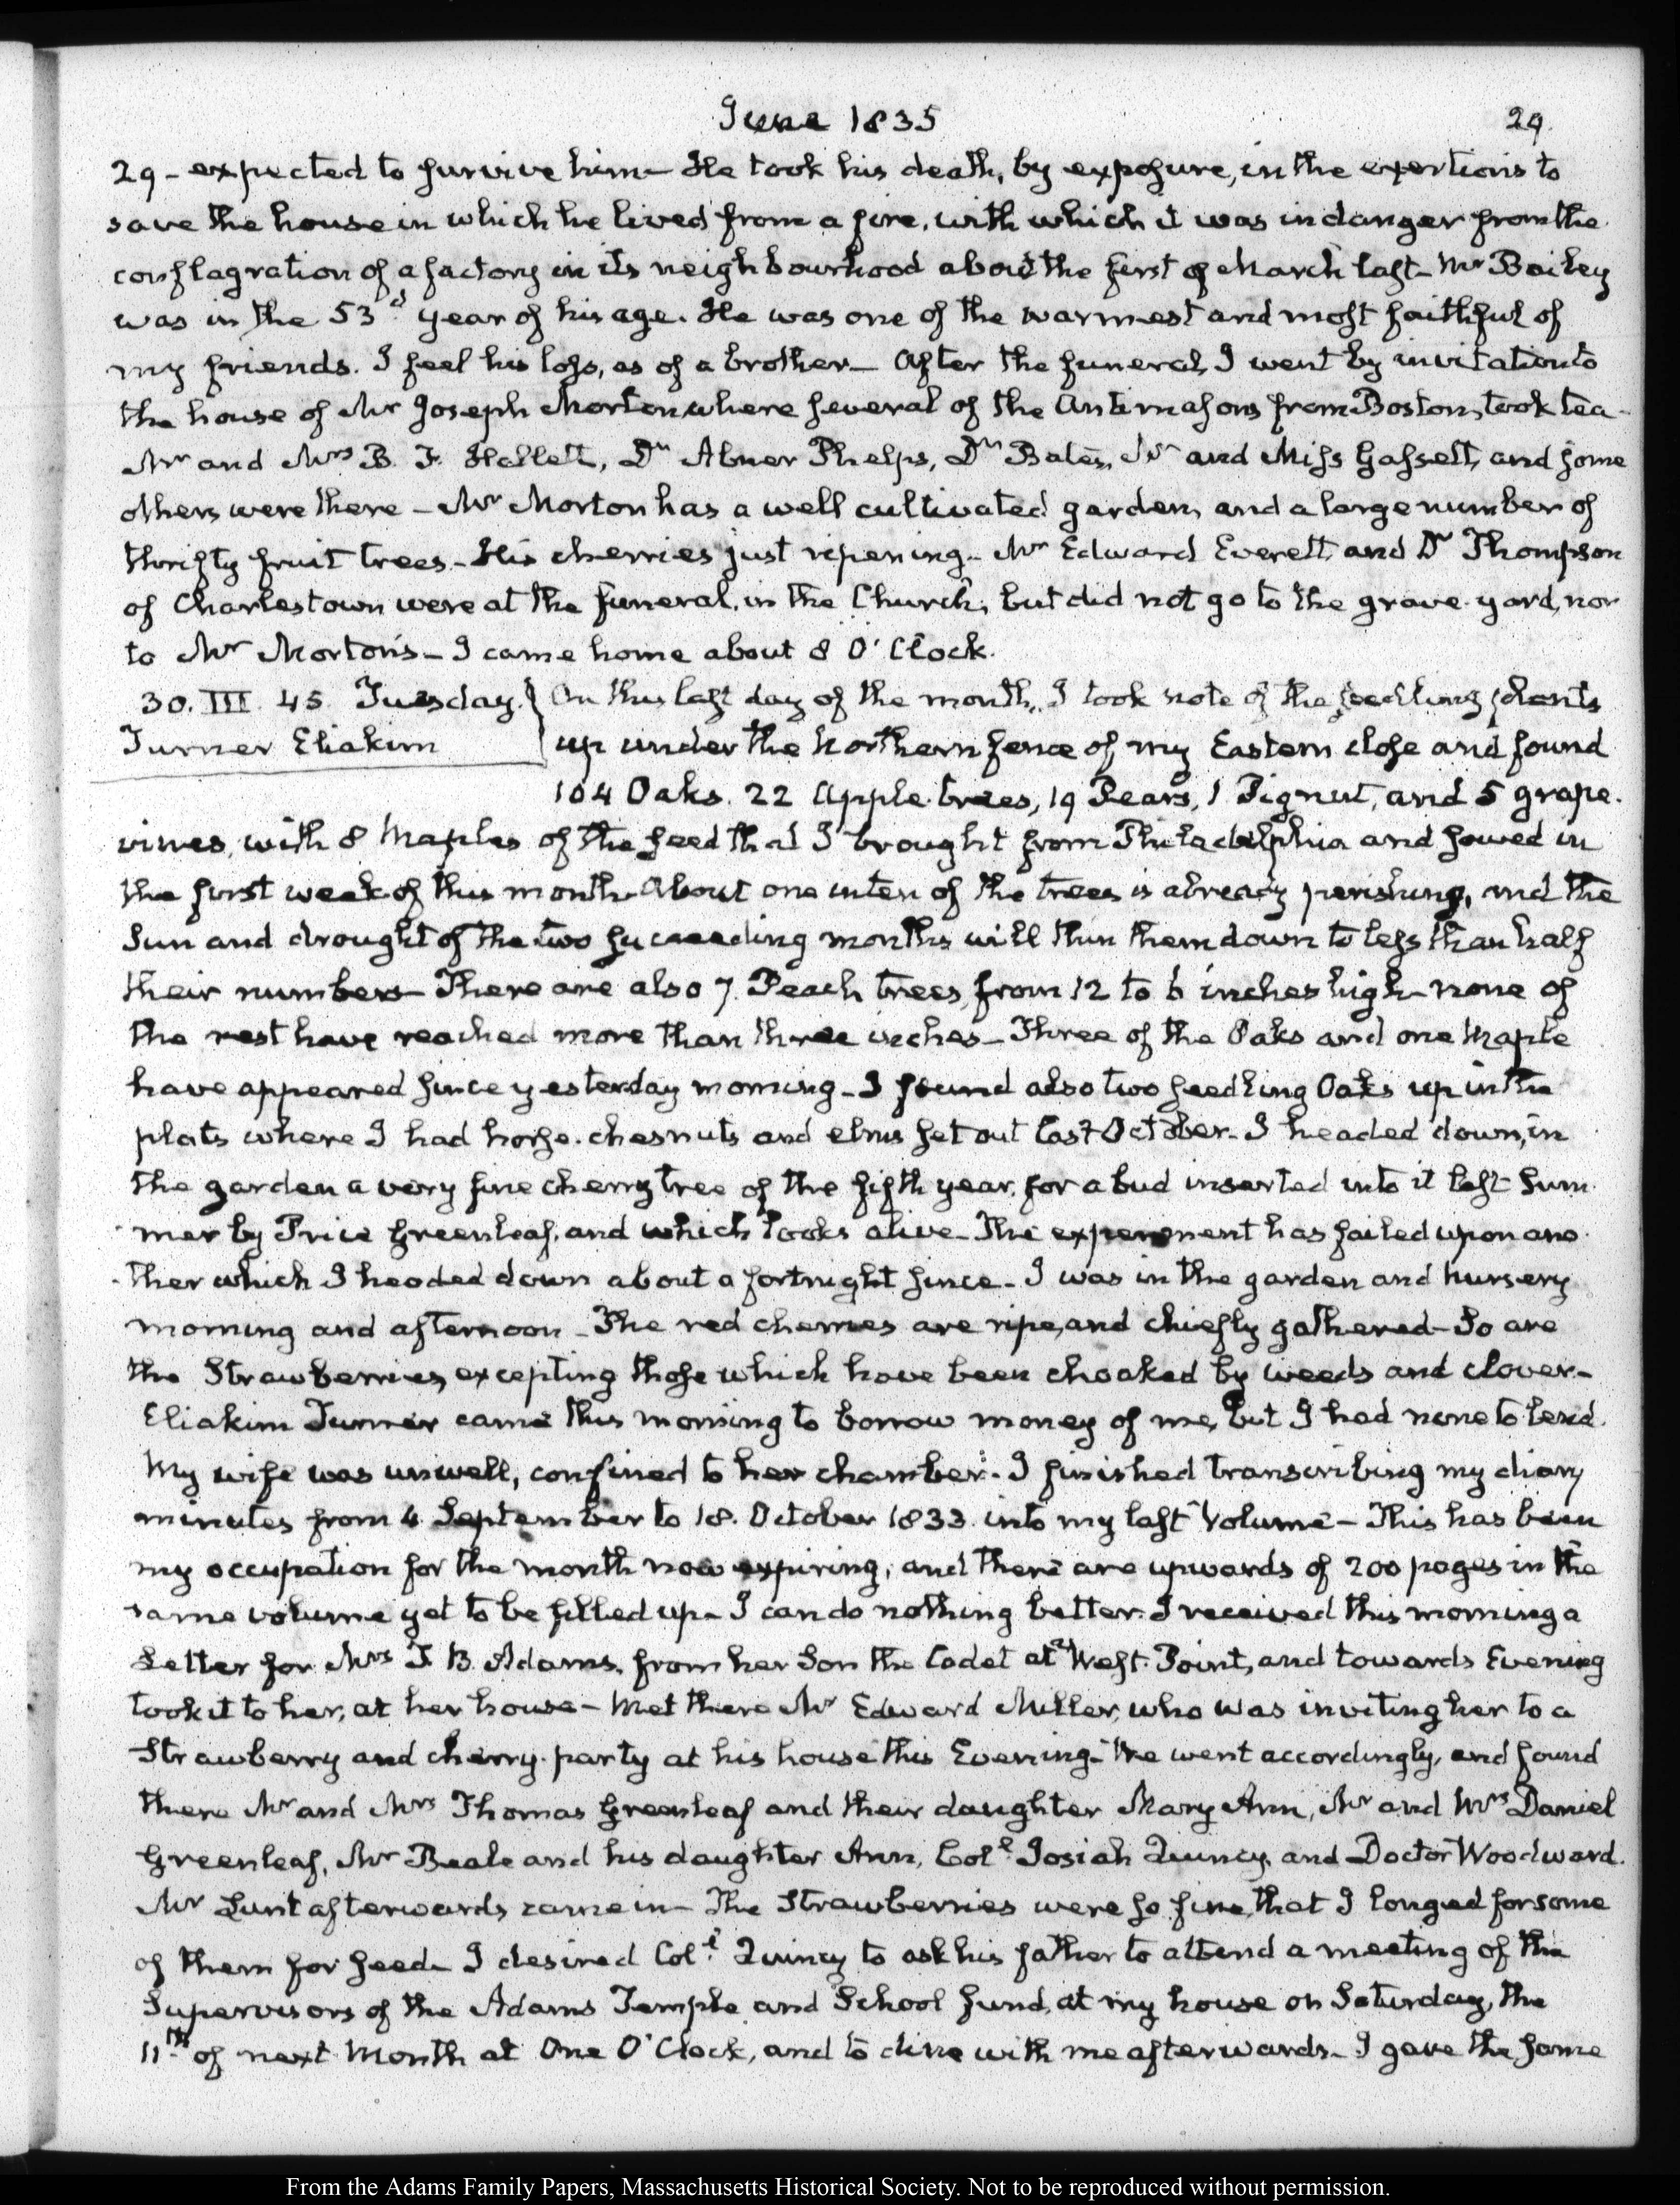 June 1835
29.
29 - expected to survive him - He took his death, by exposure, in the exertions to
save the house in which he lived from a fire, with which it was in danger from the
conflagration of a factory in its neighbourhood about the first of March last - Mr Bailey
was in the 53d year of his age. He was one of the warmest and most faithful of
my friends. I feel his loss, as of a brother - After the funeral, I went by invitation to
the house of Mr Joseph Morton where several of the Antimasons from Boston, took tea -
Mr and Mrs B. F. Hallett, Dr Abner Phelps, Dr Bates, Mr and Miss Gassett, and some
others were there - Mr Morton has a well cultivated garden, and a large number of
thrifty fruit trees - His cherries just ripening - Mr Edward Everett, and Dr Thompson
of Charlestown were at the funeral, in the Church, but did not go to the grave yard, nor
to Mr Morton's - I came home about 8 O'Clock.
30. III. 45. Tuesday. } On this last day of the month, I took note of the seedling plants
Turner Eliakim
up under the Northern fence of my Eastern close and found
104 Oaks. 22 Apple trees, 19 Pears, 1 Pignut, and 5 grape.
vines, with 8 Maples of the seed that I brought from Philadelphia and sowed in
the first week of this month - About one in ten of the trees is already perishing, and the
Sun and drought of the two succeeding months will thin them down to less than half
their numbers - There are also 7. Peach trees, from 12 to 6 inches high - none of
the rest have reached more than three inches - Three of the Oaks and one Maple
have appeared since yesterday morning - I found also two seedling Oaks up in the
plats where I had horse-chesnuts and elms set out last October - I headed down, in
the garden a very fine cherry tree of the fifth year, for a bud inserted into it last Sum
mer by Price Greenleaf, and which looks alive - The experiment has failed upon ano
ther which I headed down about a fortnight since - I was in the garden and nursery
morning and afternoon - The red cherries are ripe, and chiefly gathered - So are
the Strawberries, excepting those which have been choaked by weeds and clover -
Eliakim Turner came this morning to borrow money of me, but I had none to lend.
My wife was unwell, confined to her chamber - I finished transcribing my diary
minutes from 4 September to 18. October 1833. into my last Volume - This has been
my occupation for the month now expiring, and there are upwards of 200 pages in the
same volume yet to be filled up - I can do nothing better. I received this morning a
Letter for Mrs T. B. Adams, from her Son the Cadet at West-Point, and towards Evening
took it to her, at her house - Met there Mr Edward Miller, who was inviting her to a
Strawberry and cherry-party at his house this Evening - We went accordingly, and found
there Mr and Mrs Thomas Greenleaf and their daughter Mary Ann, Mr and Mrs Daniel
Greenleaf, Mr Beale and his daughter Ann, Coll. Josiah Quincy, and Doctor Woodward.
Mr Lunt afterwards came in - The Strawberries were so fine, that I longed for some
of them for seed - I desired Coll. Quincy to ask his father to attend a meeting of the
Supervisors of the Adams Temple and School fund, at my house on Saturday, the
11th of next Month at One O'Clock, and to dine with me afterwards - I gave the same
From the Adams Family Papers, Massachusetts Historical Society. Not to be reproduced without permission.